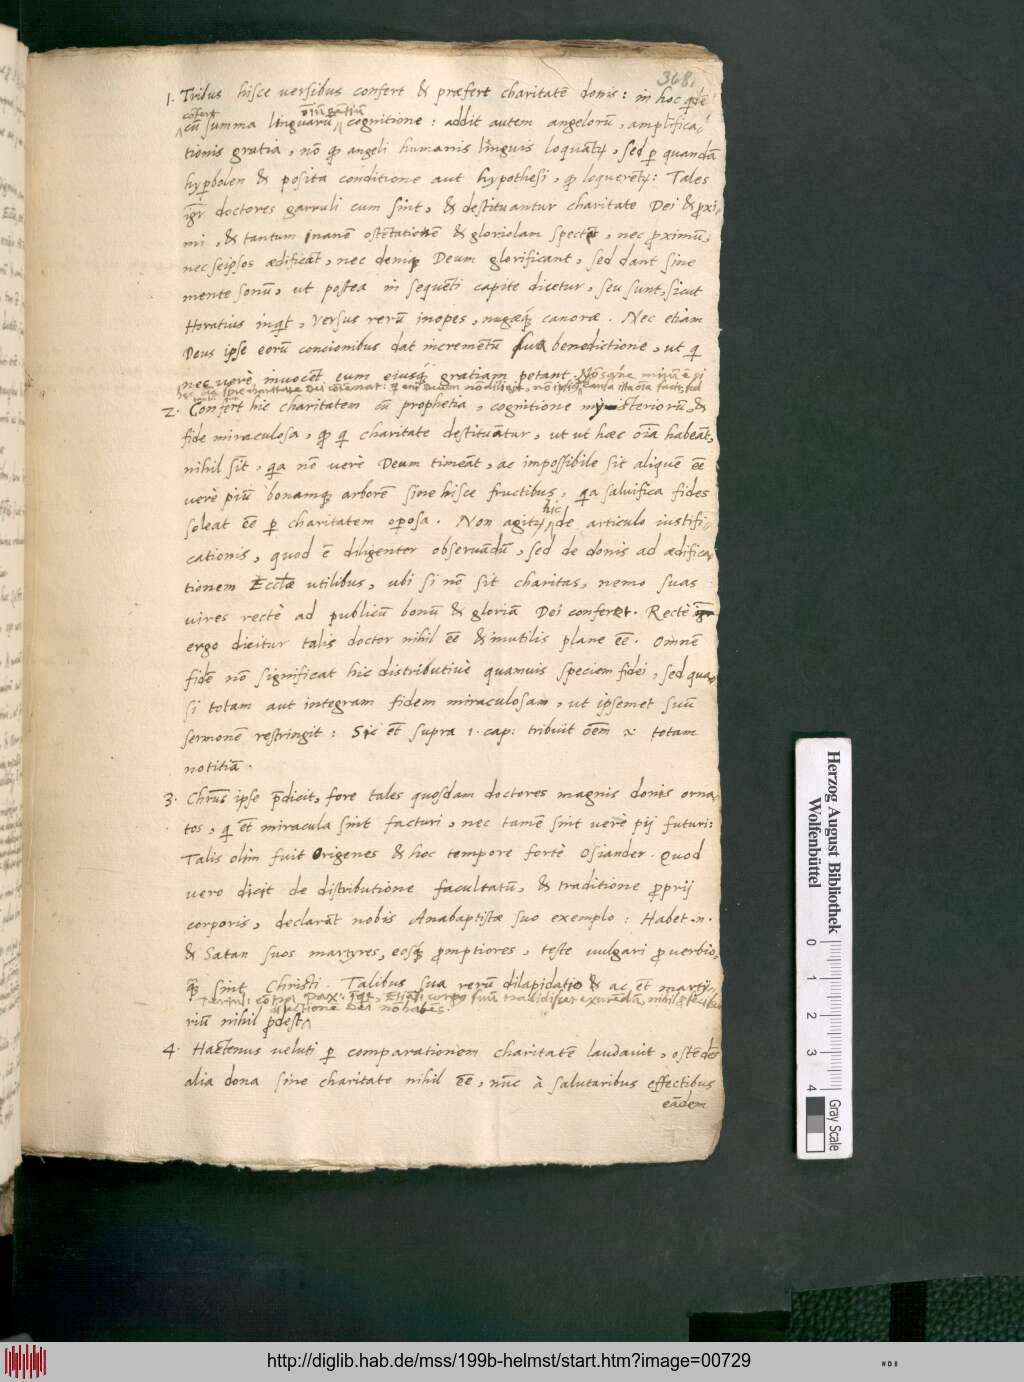 368.
1. Tribus hisce versibus confert & præfert charitatē donis: in hoc qdē
confert omniū gentiū
cū summa linguarū cognitione: addit autem angelorū, amplifica-
tionis gratia, nō qp angeli humanis linguis loquātꝫ, sed p quandā
hypbolen & posita conditione aut hypothesi, qp loqueretꝫ: Tales
igr doctores garruli cum sint, & destituantur charitate Dei & pxi-
mi, & tantum inanē ostētationē & gloriolam spectēt, nec proximū,
nec seipsos ædificāt, nec deniq Deum glorificant, sed dant sine
mente sonū, ut postea in sequēti capite dicetur, seu sunt, sicut
Horatius inqt, Versus rerū inopes, nugæqꝫ canoræ. Nec etiam
Deus ipse eorū concionibus dat incremētū sua benedictione, ut qi
nec verè invocēt eum eiusqꝫ gratiam petant.
2. Confert hic charitatem cū prophetia, cognitione mysteriorū, &
fide miraculosa, qp qi charitate destituātur, ut ut hæc oīa habeāt,
nihil sīt, qa nō verè Deum timeāt, ac impossibile sit aliquē ēē
verè piū bonamqꝫ arborē sine hisce fructibus, qa salvifica fides
hic
soleat ēē p charitatem operosa. Non agitꝫ de articulo iustifi-
cationis, quod ē diligenter observādū, sed de donis ad ædifica-
tionem Ecclæ utilibus, ubi si nō sit charitas, nemo suas
vires rectè ad publicū bonū & gloriā Dei conferet. Rectè
ergo dicitur talis doctor nihil ēē & inutilis plane ēē. Omnē
fidē nō significat hic distributivè quamvis speciem fidei, sed qua-
si totam aut integram fidem miraculosam, ut ipsemet suū
sermonē restringit: Sic ēt supra 1. cap: tribuit ōēm x totam
notitiā.
3. Chrūs ipse p̄dicit, fore tales quosdam doctores magnis donis orna-
tos, qi ēt miracula sint facturi, nec tamē sint verè pij futuri:
Talis olim fuit Origenes & hoc tempore fortè Osiander. Quod
vero dicit de distributione facultatū, & traditione proprij
corporis, declarāt nobis Anabaptistæ suo exemplo: Habet .n.
& Satan suos martyres, eosqꝫ promptiores, teste vulgari proverbio,
qꝫ sint Christi. Talibus sua rerū dilapidatio & ac ēt marty-
riū nihil prodest
4. Hactenus veluti p comparationem charitatē laudavit, ostēdēs
alia dona sine charitate nihil ēē, nūc à salutaribus effectibus
eādem
Herzog August Bibliothek
Wolfenbüttel
0 1 2 3 4
Gray Scale
http://diglib.hab.de/mss/199b-helmst/start.htm?image=00729